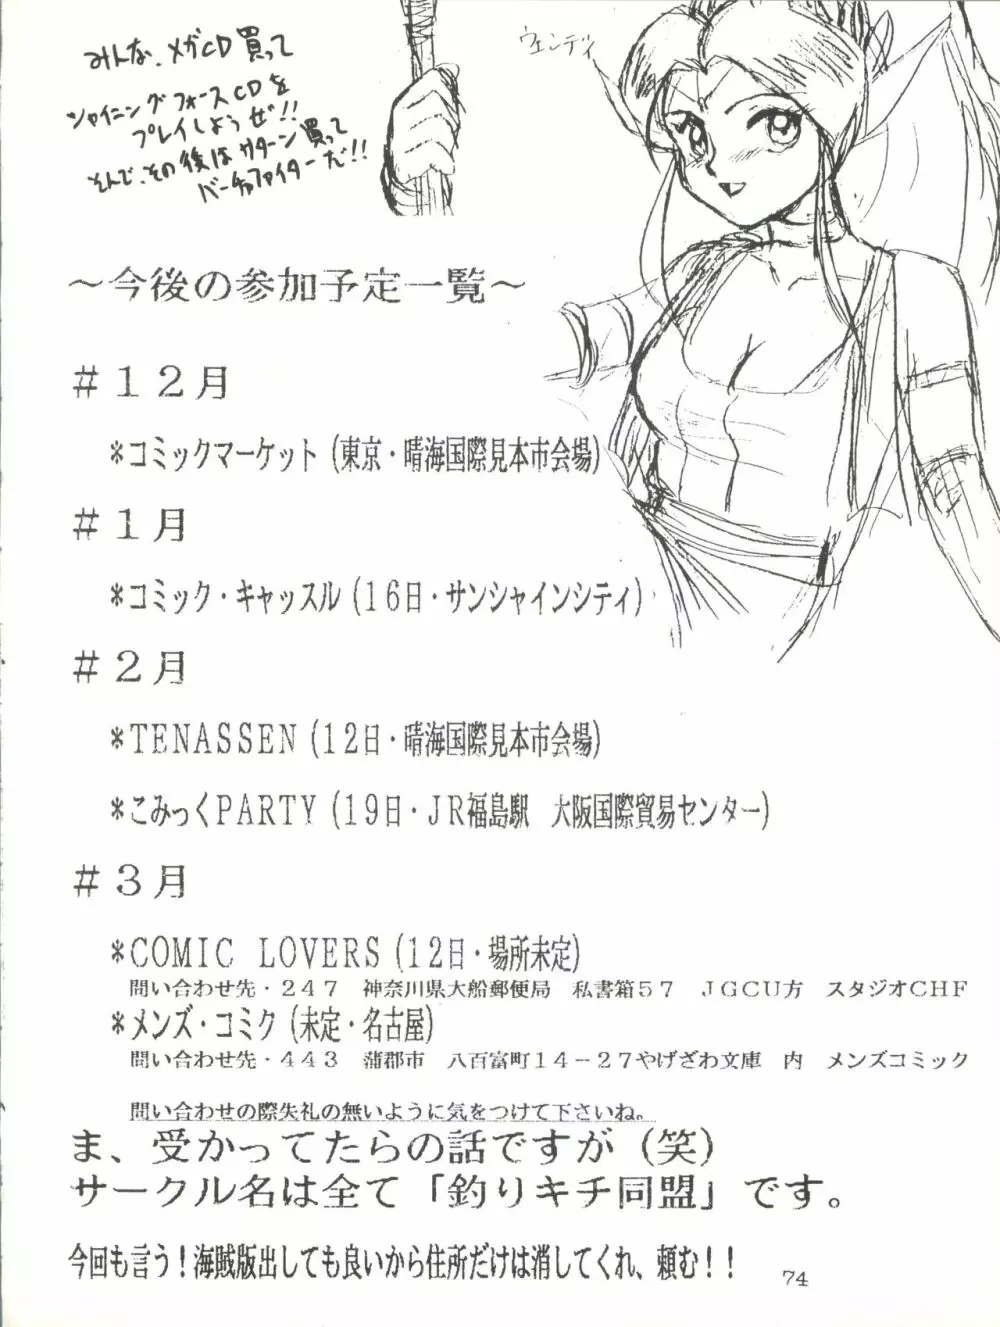 みんな、メガCD買って
シャイニングフォースCDを
プレイしようぜ!!
そんで、その後はサターン買って
バーチャファイターだ!!
ウェンディ
～今後の参加予定一覧～
＃１２月
＊コミックマーケット（東京・晴海国際見本市会場）
＃１月
＊コミック・キャッスル（１６日・サンシャインシティ）
＃２月
＊ＴＥＮＡＳＳＥＮ（１２日・晴海国際見本市会場）
＊こみっくＰＡＲＴＹ（１９日・ＪＲ福島駅　大阪国際貿易センター）
＃３月
＊ＣＯＭＩＣ　ＬＯＶＥＲＳ（１２日・場所未定）
問い合わせ先・２４７　神奈川県大船郵便局　私書箱５７　ＪＧＣＵ方　スタジオＣＨＦ
＊メンズ・コミク（未定・名古屋）
問い合わせ先・４４３　蒲郡市　八百富町１４－２７やげざわ文庫　内　メンズコミック
問い合わせの際失礼の無いように気をつけて下さいね。
ま、受かってたらの話ですが（笑）
サークル名は全て「釣りキチ同盟」です。
今回も言う！海賊版出しても良いから住所だけは消してくれ、頼む！！
74